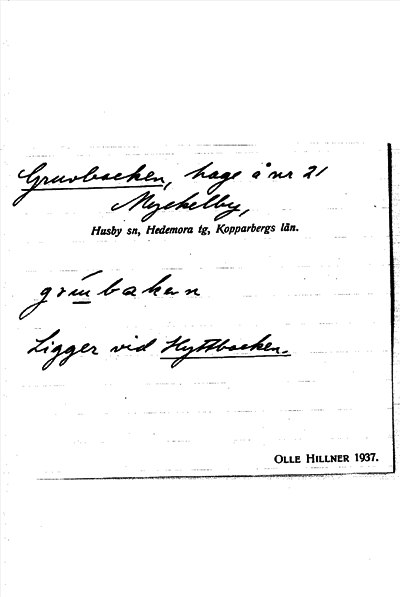 Gruvbacken, hage å nr 21
Myckelby,
Husby sn, Hedemora tg, Kopparbergs län.
Ligger vid Hyttbacken.
OLLE HILLNER 1937.